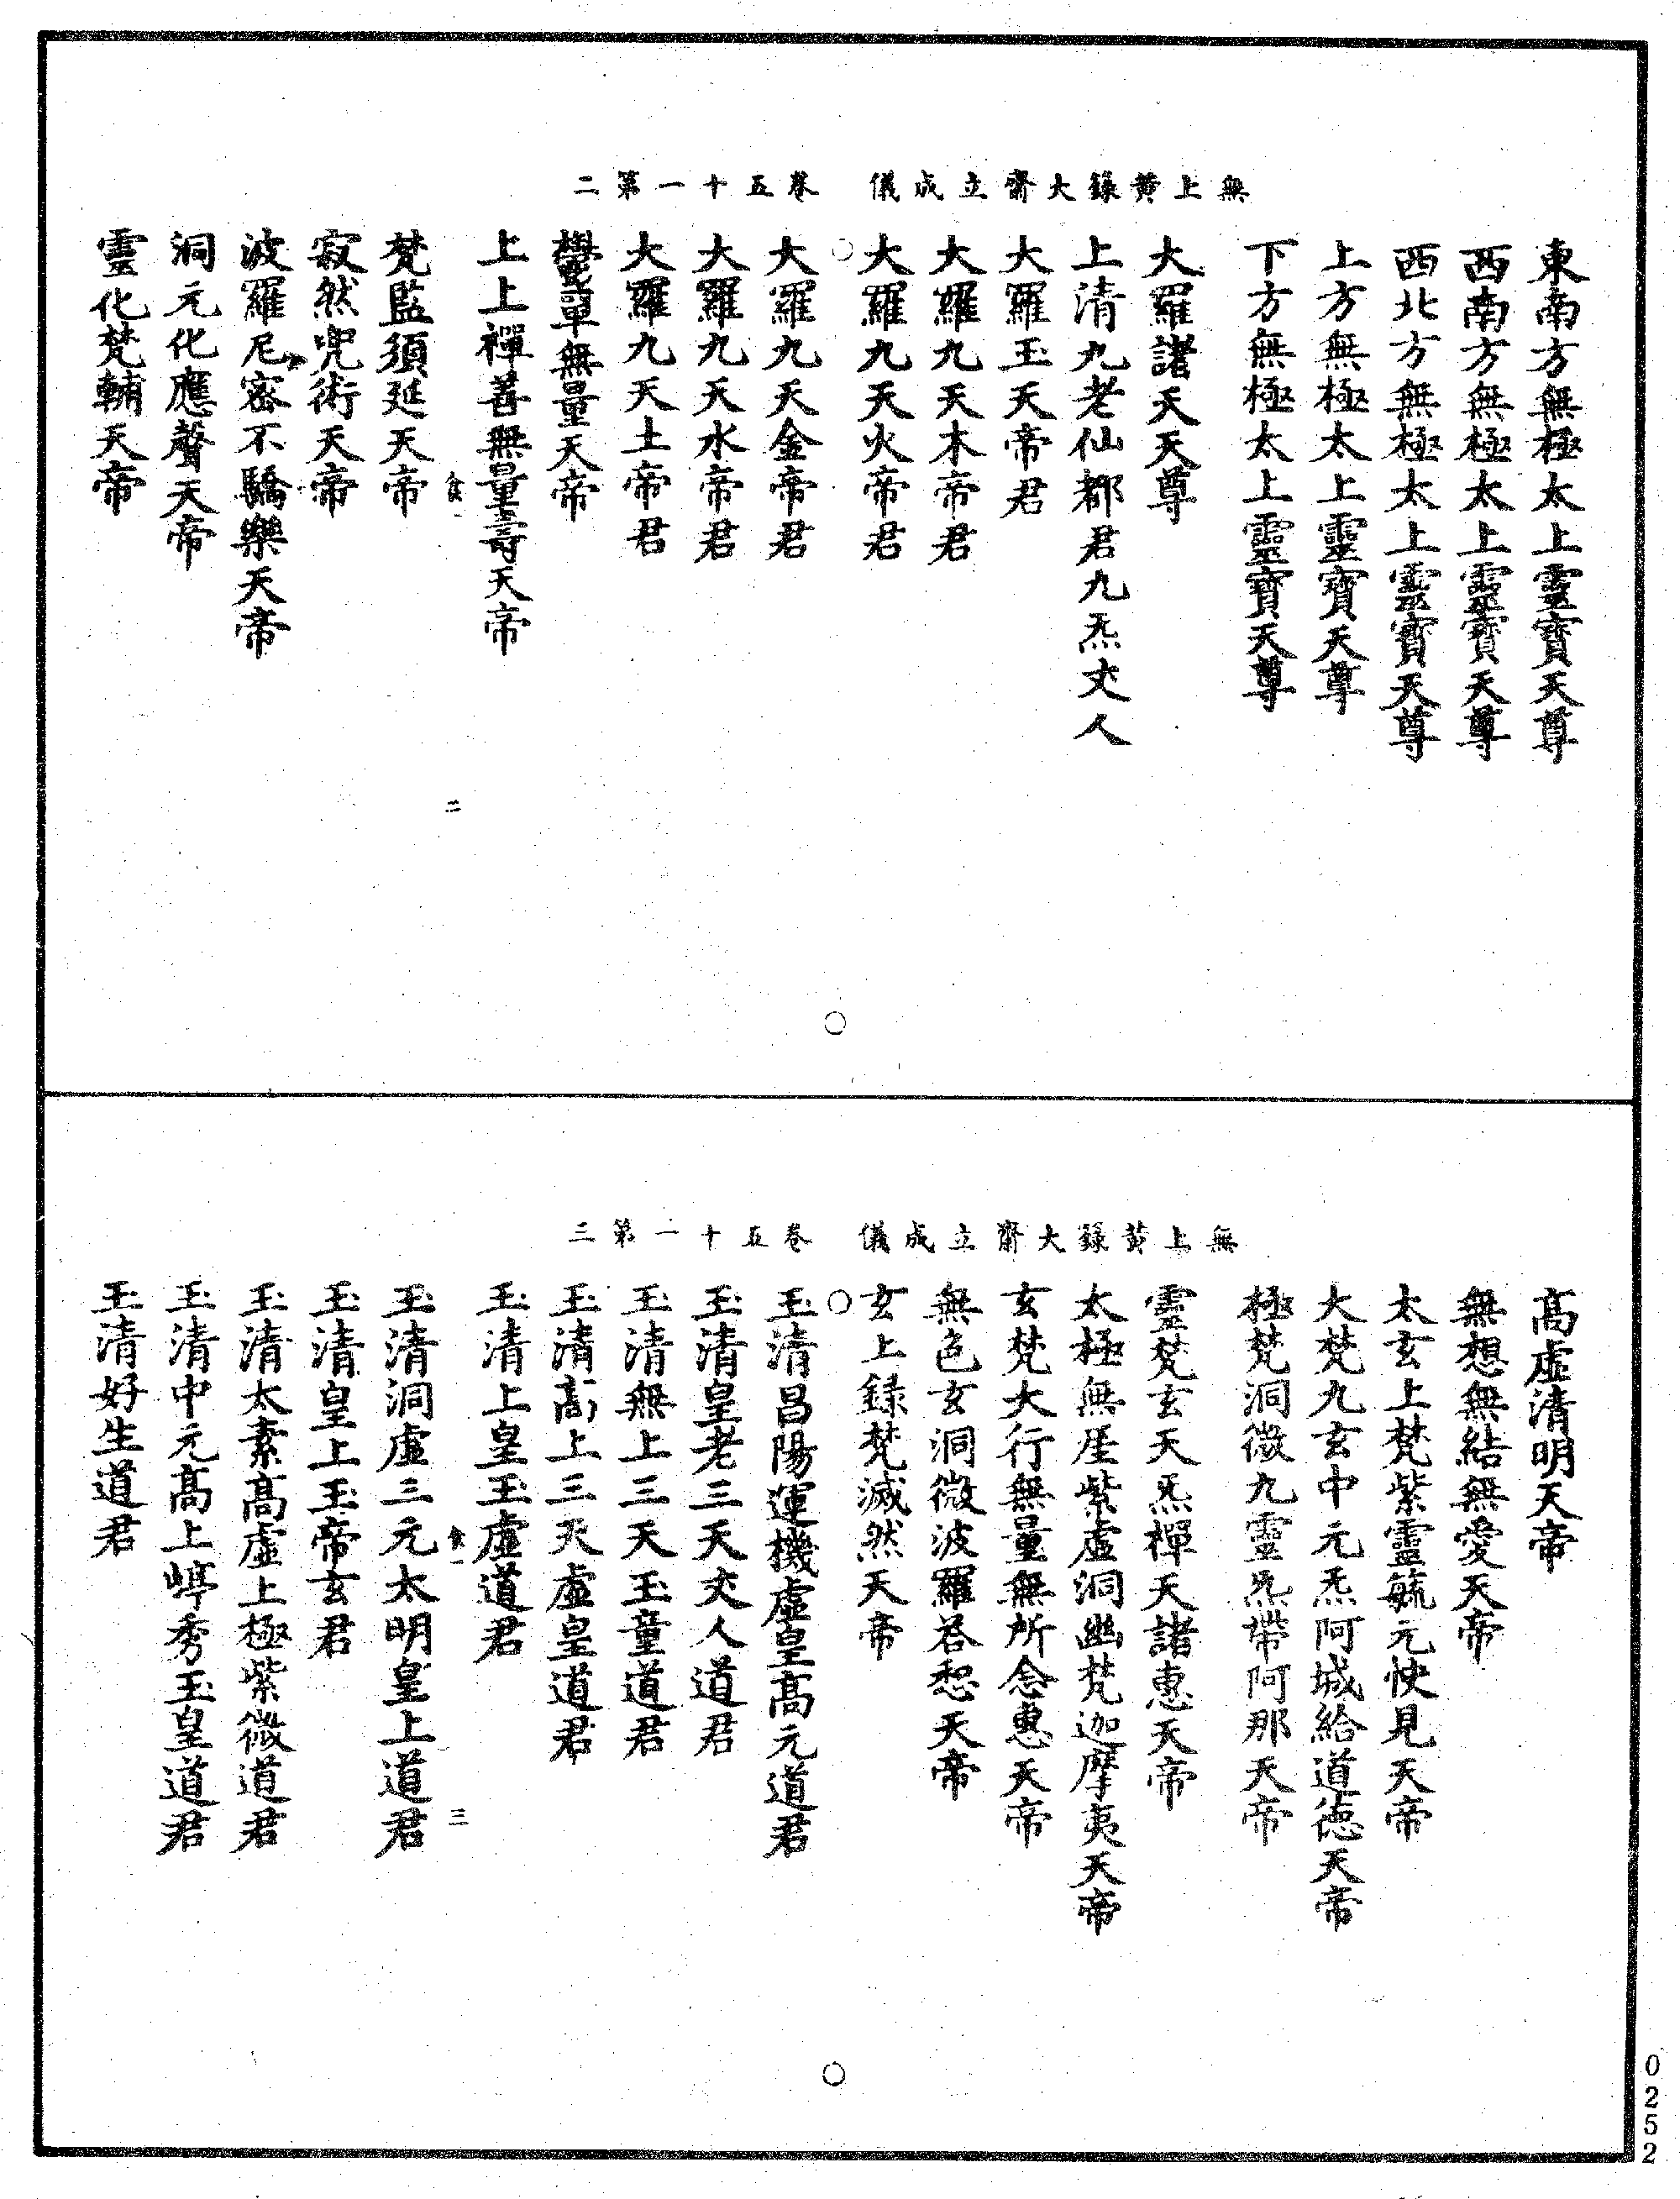 無上黃籙大齋立成儀 卷五十一第二
東南方無極太上靈寶天尊
西南方無極太上靈寶天尊
西北方無極太上靈寶天尊
上方無極太上靈寶天尊
下方無極太上靈寶天尊
大羅諸天天尊
上清九老仙都君九炁丈人
大羅玉天帝君
大羅九天木帝君
大羅九天火帝君
大羅九天金帝君
大羅九天水帝君
大羅九天土帝君
鬱單無量天帝
上上禪善無量壽天帝
食一 二
梵監須延天帝
寂然兜術天帝
波羅尼密不驕樂天帝
洞元化應聲天帝
靈化梵輔天帝
無上黃籙大齋立成儀 卷五十一第三
高虛清明天帝
無想無結無愛天帝
太玄上梵紫靈毓元快見天帝
大梵九玄中元炁阿城給道德天帝
極梵洞微九靈炁帶阿那天帝
靈梵玄天炁禪天諸惠天帝
太極無厓紫虛洞幽梵迦摩夷天帝
玄梵大行無量無所念惠天帝
無色玄洞微波羅答惒天帝
玄上錄梵滅然天帝
玉清昌陽運機虛皇高元道君
玉清皇老三天丈人道君
玉清無上三天玉童道君
玉清高上三天虛皇道君
玉清上皇玉虛道君
食一 三
玉清洞虛三元太明皇上道君
玉清皇上玉帝玄君
玉清太素高虛上極紫微道君
玉清中元高上崿秀玉皇道君
玉清好生道君
0252